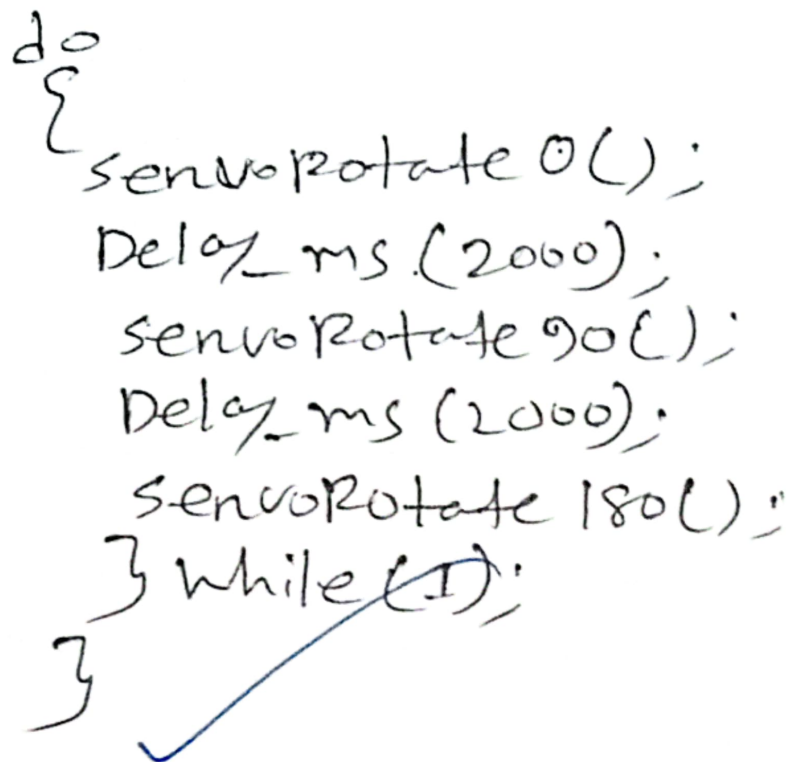 do
{
servoRotate0();
Delay_ms(2000);
servoRotate90();
Delay_ms(2000);
servoRotate180();
} while(1);
}